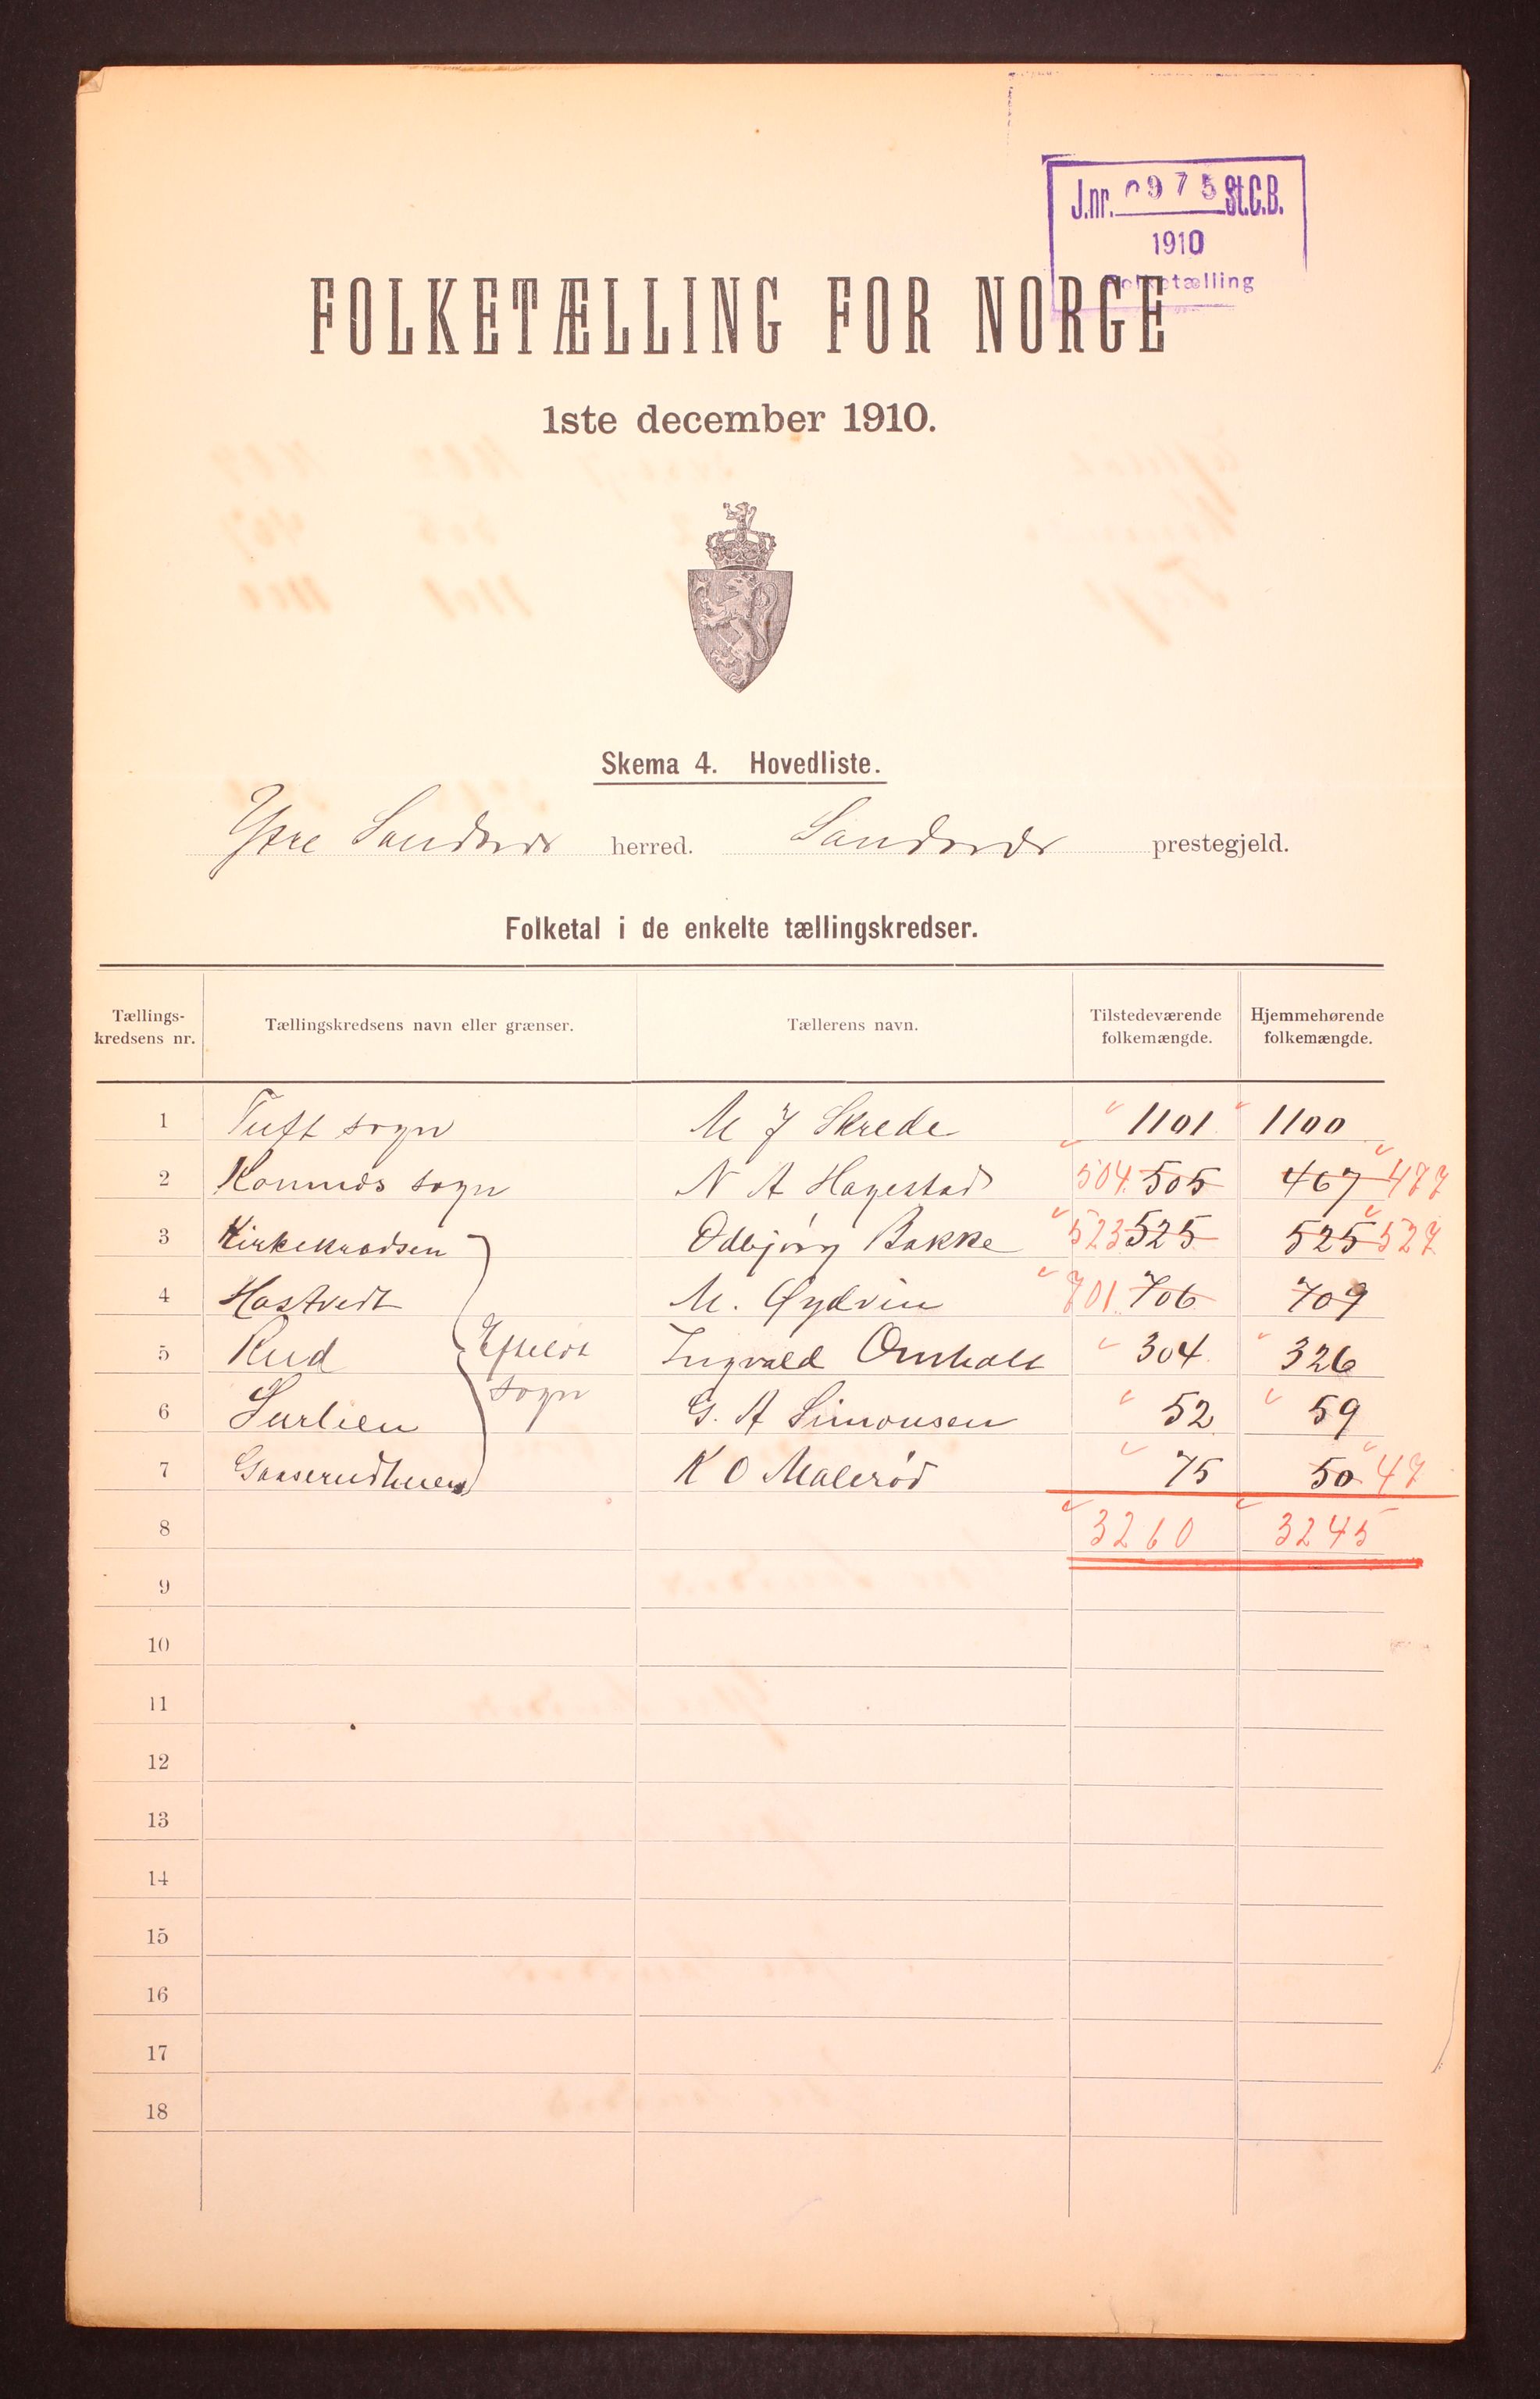 J.nr. 0975 St.C.B.
1910
Folketælling
FOLKETÆLLING FOR NORGE
1ste december 1910.
Skema 4. Hovedliste.
Ytre Sandsvær herred. Sandsvær prestegjeld.
Folketal i de enkelte tællingskredser.
Tællings-kredsens nr. Tællingskredsens navn eller grænser. Tællerens navn. Tilstedeværende folkemængde. Hjemmehørende folkemængde.
1 Tuft sogn M J Skrede 1101 1100
2 Komnes sogn N A Hagestad 504 505 467 477
3 Kirkekredsen Odbjörg Bakke 523 525 525 527
4 Hostvedt M. Øydvin 701 706 709
5 Rud Efteløt Ingvald Omholt 304 326
6 Surlien sogn G. A Simonsen 52 59
7 K O Malerød 75 50 47
8 3260 3245
9
10
11
12
13
14
15
16
17
18